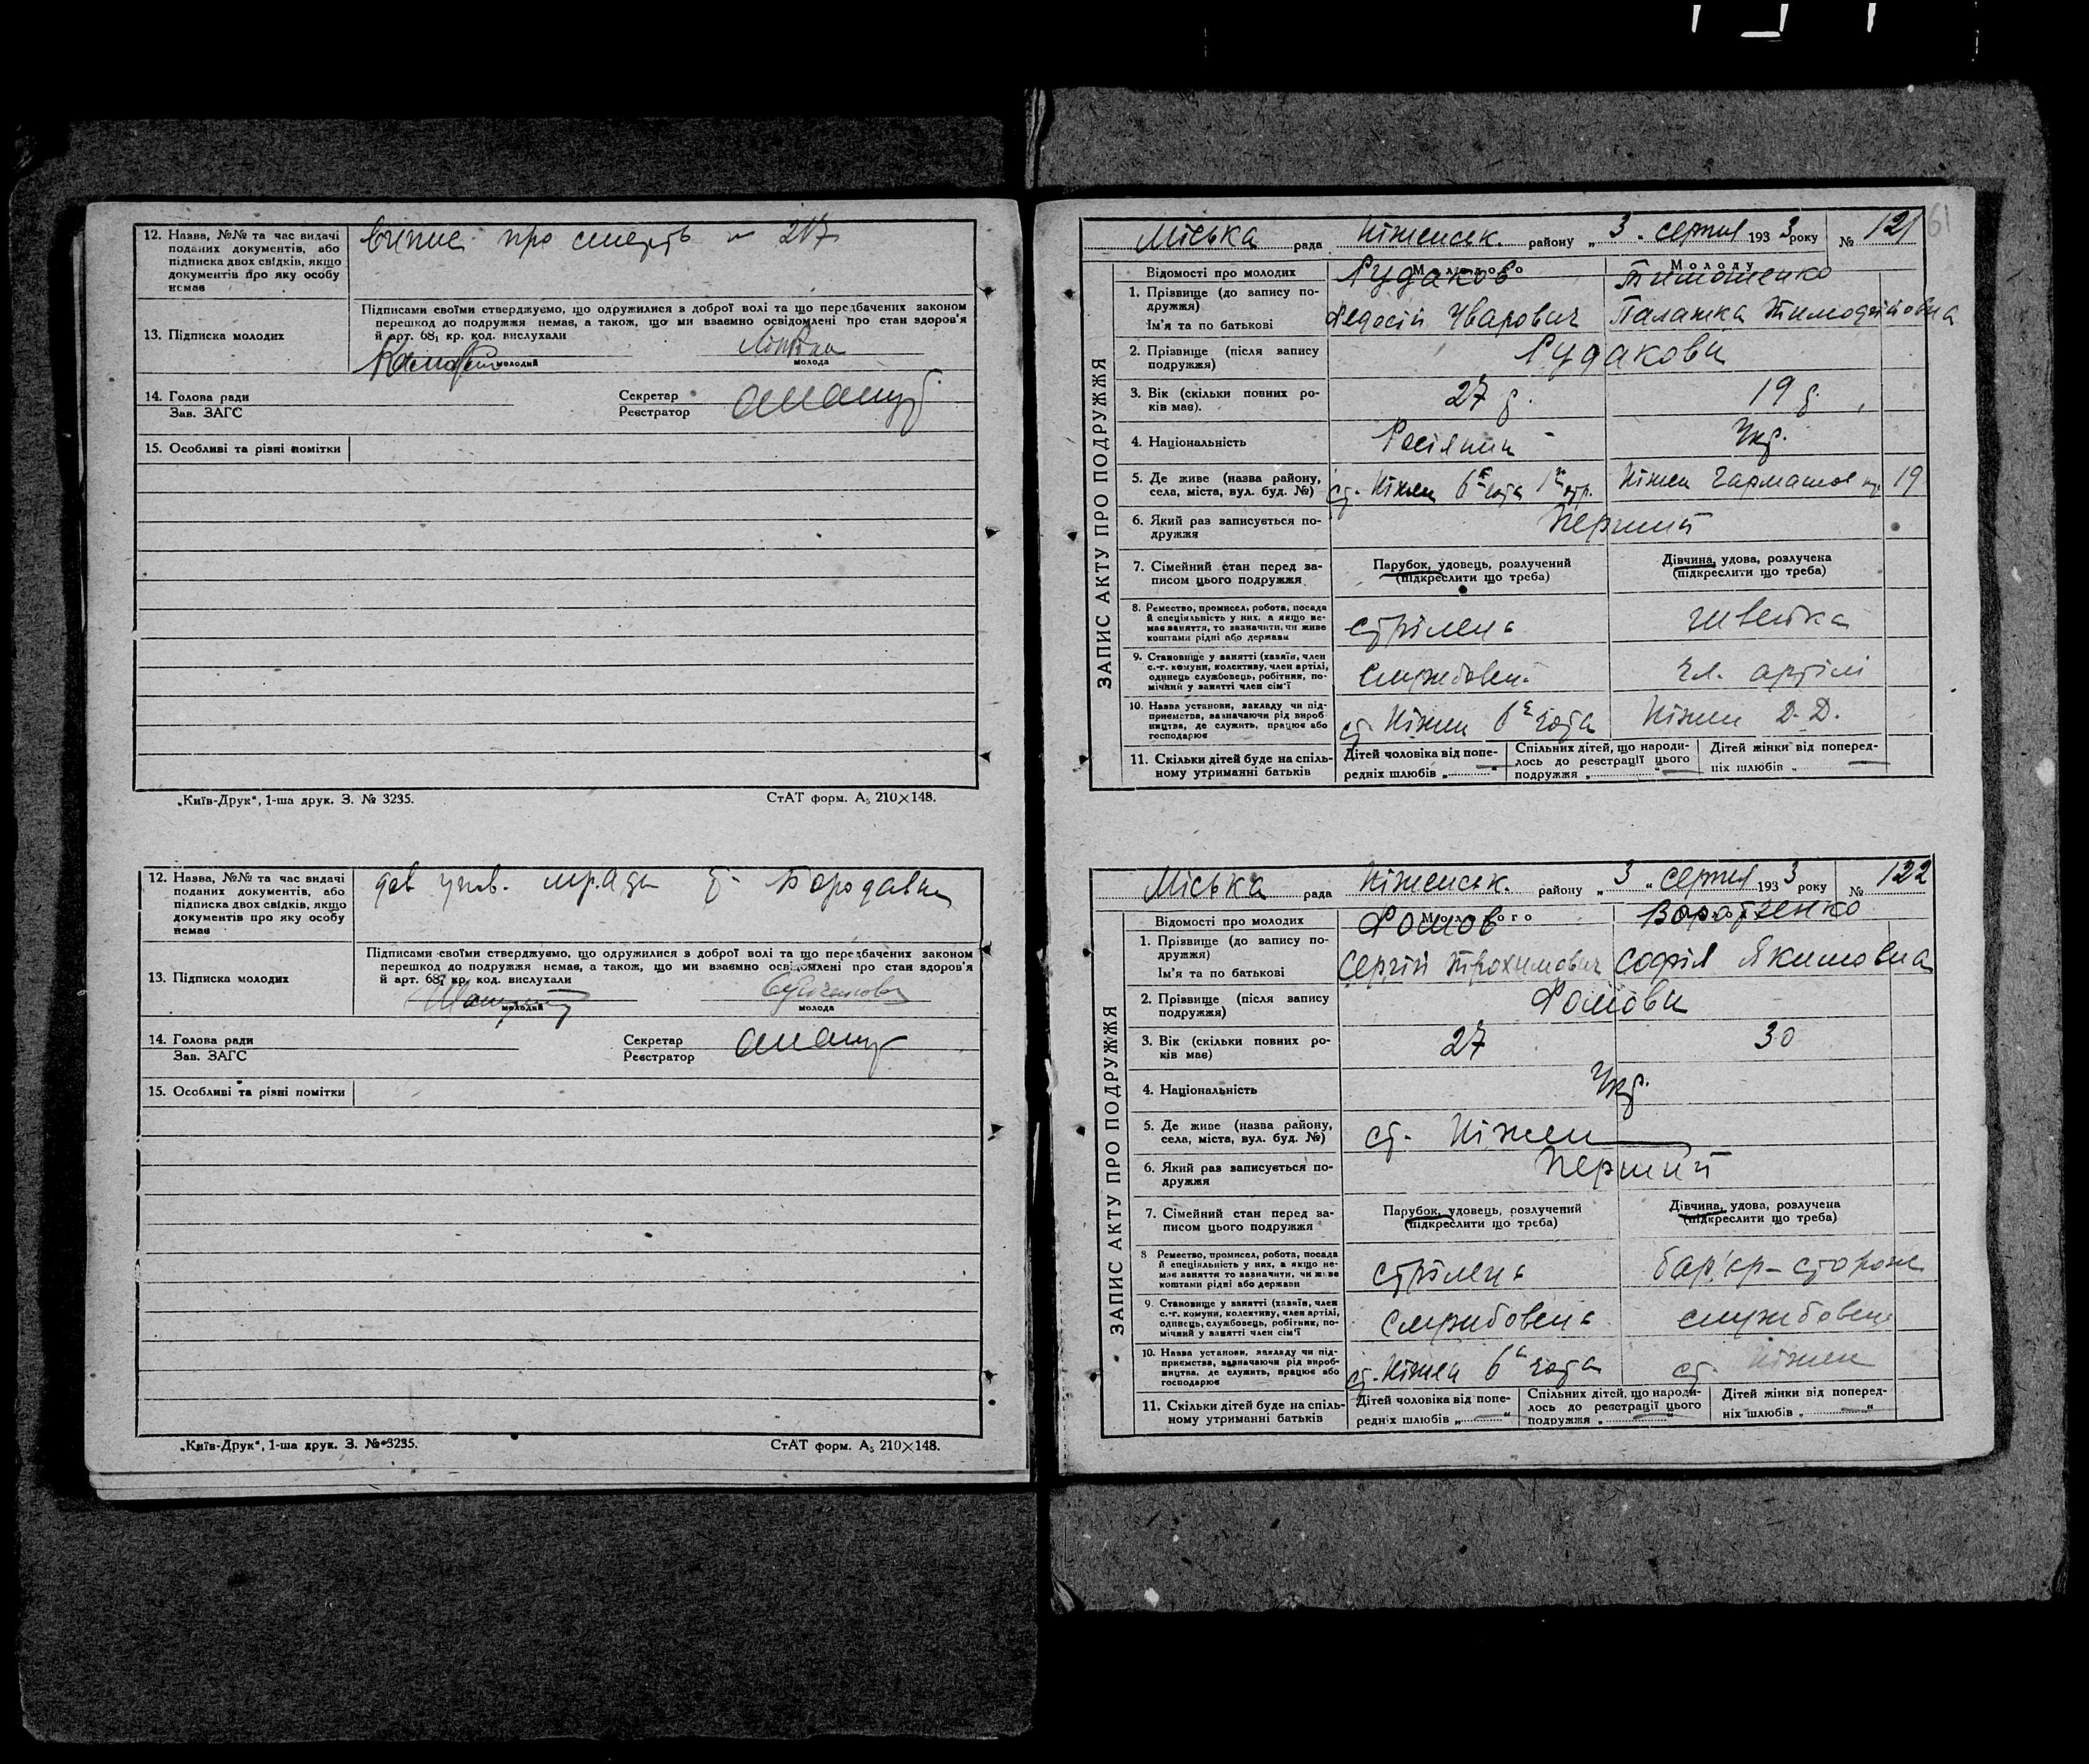 12. Назва, №№ та час видачі
поданих документів, або
підписка двох свідків, якщо
документів про яку особу
немає
про смерть № 217
Підписами своїми стверджуємо, що одружилися з доброї волі та що передбачених законом
перешкод до подружжя немає, а також, що ми взаємно освідомлені про стан здоров'я
й арт. 68₁ кр. код. вислухали
13. Підписка молодих
молодий
молода
14. Голова ради
Зав. ЗАГС
Секретар
Реєстратор
15. Особливі та різні помітки
„Київ-Друк“, 1-ша друк. З. № 3235.
СтАТ форм. А₅ 210×148.
12. Назва, №№ та час видачі
поданих документів, або
підписка двох свідків, якщо
документів про яку особу
немає
Підписами своїми стверджуємо, що одружилися з доброї волі та що передбачених законом
перешкод до подружжя немає, а також, що ми взаємно освідомлені про стан здоров'я
й арт. 68₁ кр. код. вислухали
13. Підписка молодих
молодий
молода
14. Голова ради
Зав. ЗАГС
Секретар
Реєстратор
15. Особливі та різні помітки
„Київ-Друк“, 1-ша друк. З. № 3235.
СтАТ форм. А₅ 210×148.
61
Міська рада Ніженськ. району „3“ серпня 1933 року № 121
ЗАПИС АКТУ ПРО ПОДРУЖЖЯ
Відомості про молодих
Молодого
Молоду
1. Прізвище (до запису подружжя)
Рудаков
Тимошенко
Ім'я та по батькові
Федосій Уварович
Палажка Тимофійовна
2. Прізвище (після запису подружжя)
Рудакови
3. Вік (скільки повних років має).
27 р.
19 р.
4. Національність
Росіянин
Укр.
5. Де живе (назва району,
села, міста, вул. буд. №)
ст. Ніжен 6
Ніжен Гарматов 19
6. Який раз записується подружжя
Перший
7. Сімейний стан перед записом цього подружжя
Парубок, удовець, розлучений
(підкреслити що треба)
Дівчина, удова, розлучена
(підкреслити що треба)
8. Ремество, промисел, робота, посада
й спеціяльність у них, а якщо немає заняття, то зазначити, чи живе
коштами рідні або держави
стрілець
швейка
9. Становище у занятті (хазяїн, член
с.-г. комуни, колективу, член артілі,
одинець службовець, робітник, помічний у занятті член сім'ї
службовець
чл. артілі
10. Назва установи, закладу чи підприємства, зазначаючи рід виробництва, де служить, працює або
господарює
ст. Ніжен 6
Ніжен
11. Скільки дітей буде на спільному утриманні батьків
Дітей чоловіка від попередніх шлюбів „ — “
Спільних дітей, що народилось до реєстрації цього
подружжя „ — “
Дітей жінки від попередніх шлюбів „ —
Міська рада Ніженськ. району „3“ серпня 1933 року № 122
ЗАПИС АКТУ ПРО ПОДРУЖЖЯ
Відомості про молодих
Молодого
1. Прізвище (до запису подружжя)
Фомов
Ім'я та по батькові
Сергій Трохимович
Софія Якимовна
2. Прізвище (після запису подружжя)
Фомови
3. Вік (скільки повних років має)
27
30
4. Національність
Укр.
5. Де живе (назва району,
села, міста, вул. буд. №)
ст. Ніжен
6. Який раз записується подружжя
Перший
7. Сімейний стан перед записом цього подружжя
Парубок, удовець, розлучений
(підкреслити що треба)
Дівчина, удова, розлучена
(підкреслити що треба)
8 Ремество, промисел, робота, посада
й спеціяльність у них, а якщо немає заняття то зазначити, чи живе
коштами рідні або держави
стрілець
бар'єр-сторож
9. Становище у занятті (хазяїн, член
с.-г. комуни, колективу, член артілі,
одинець, службовець, робітник, помічний у занятті член сім'ї
службовець
службовець
10. Назва установи, закладу чи підприємства, зазначаючи рід виробництва, де служить, працює або
господарює
ст. Ніжен 6
ст. Ніжен
11. Скільки дітей буде на спільному утриманні батьків
Дітей чоловіка від попередніх шлюбів „ — “
Спільних дітей, що народилось до реєстрації цього
подружжя „ — “
Дітей жінки від попередніх шлюбів „ — “